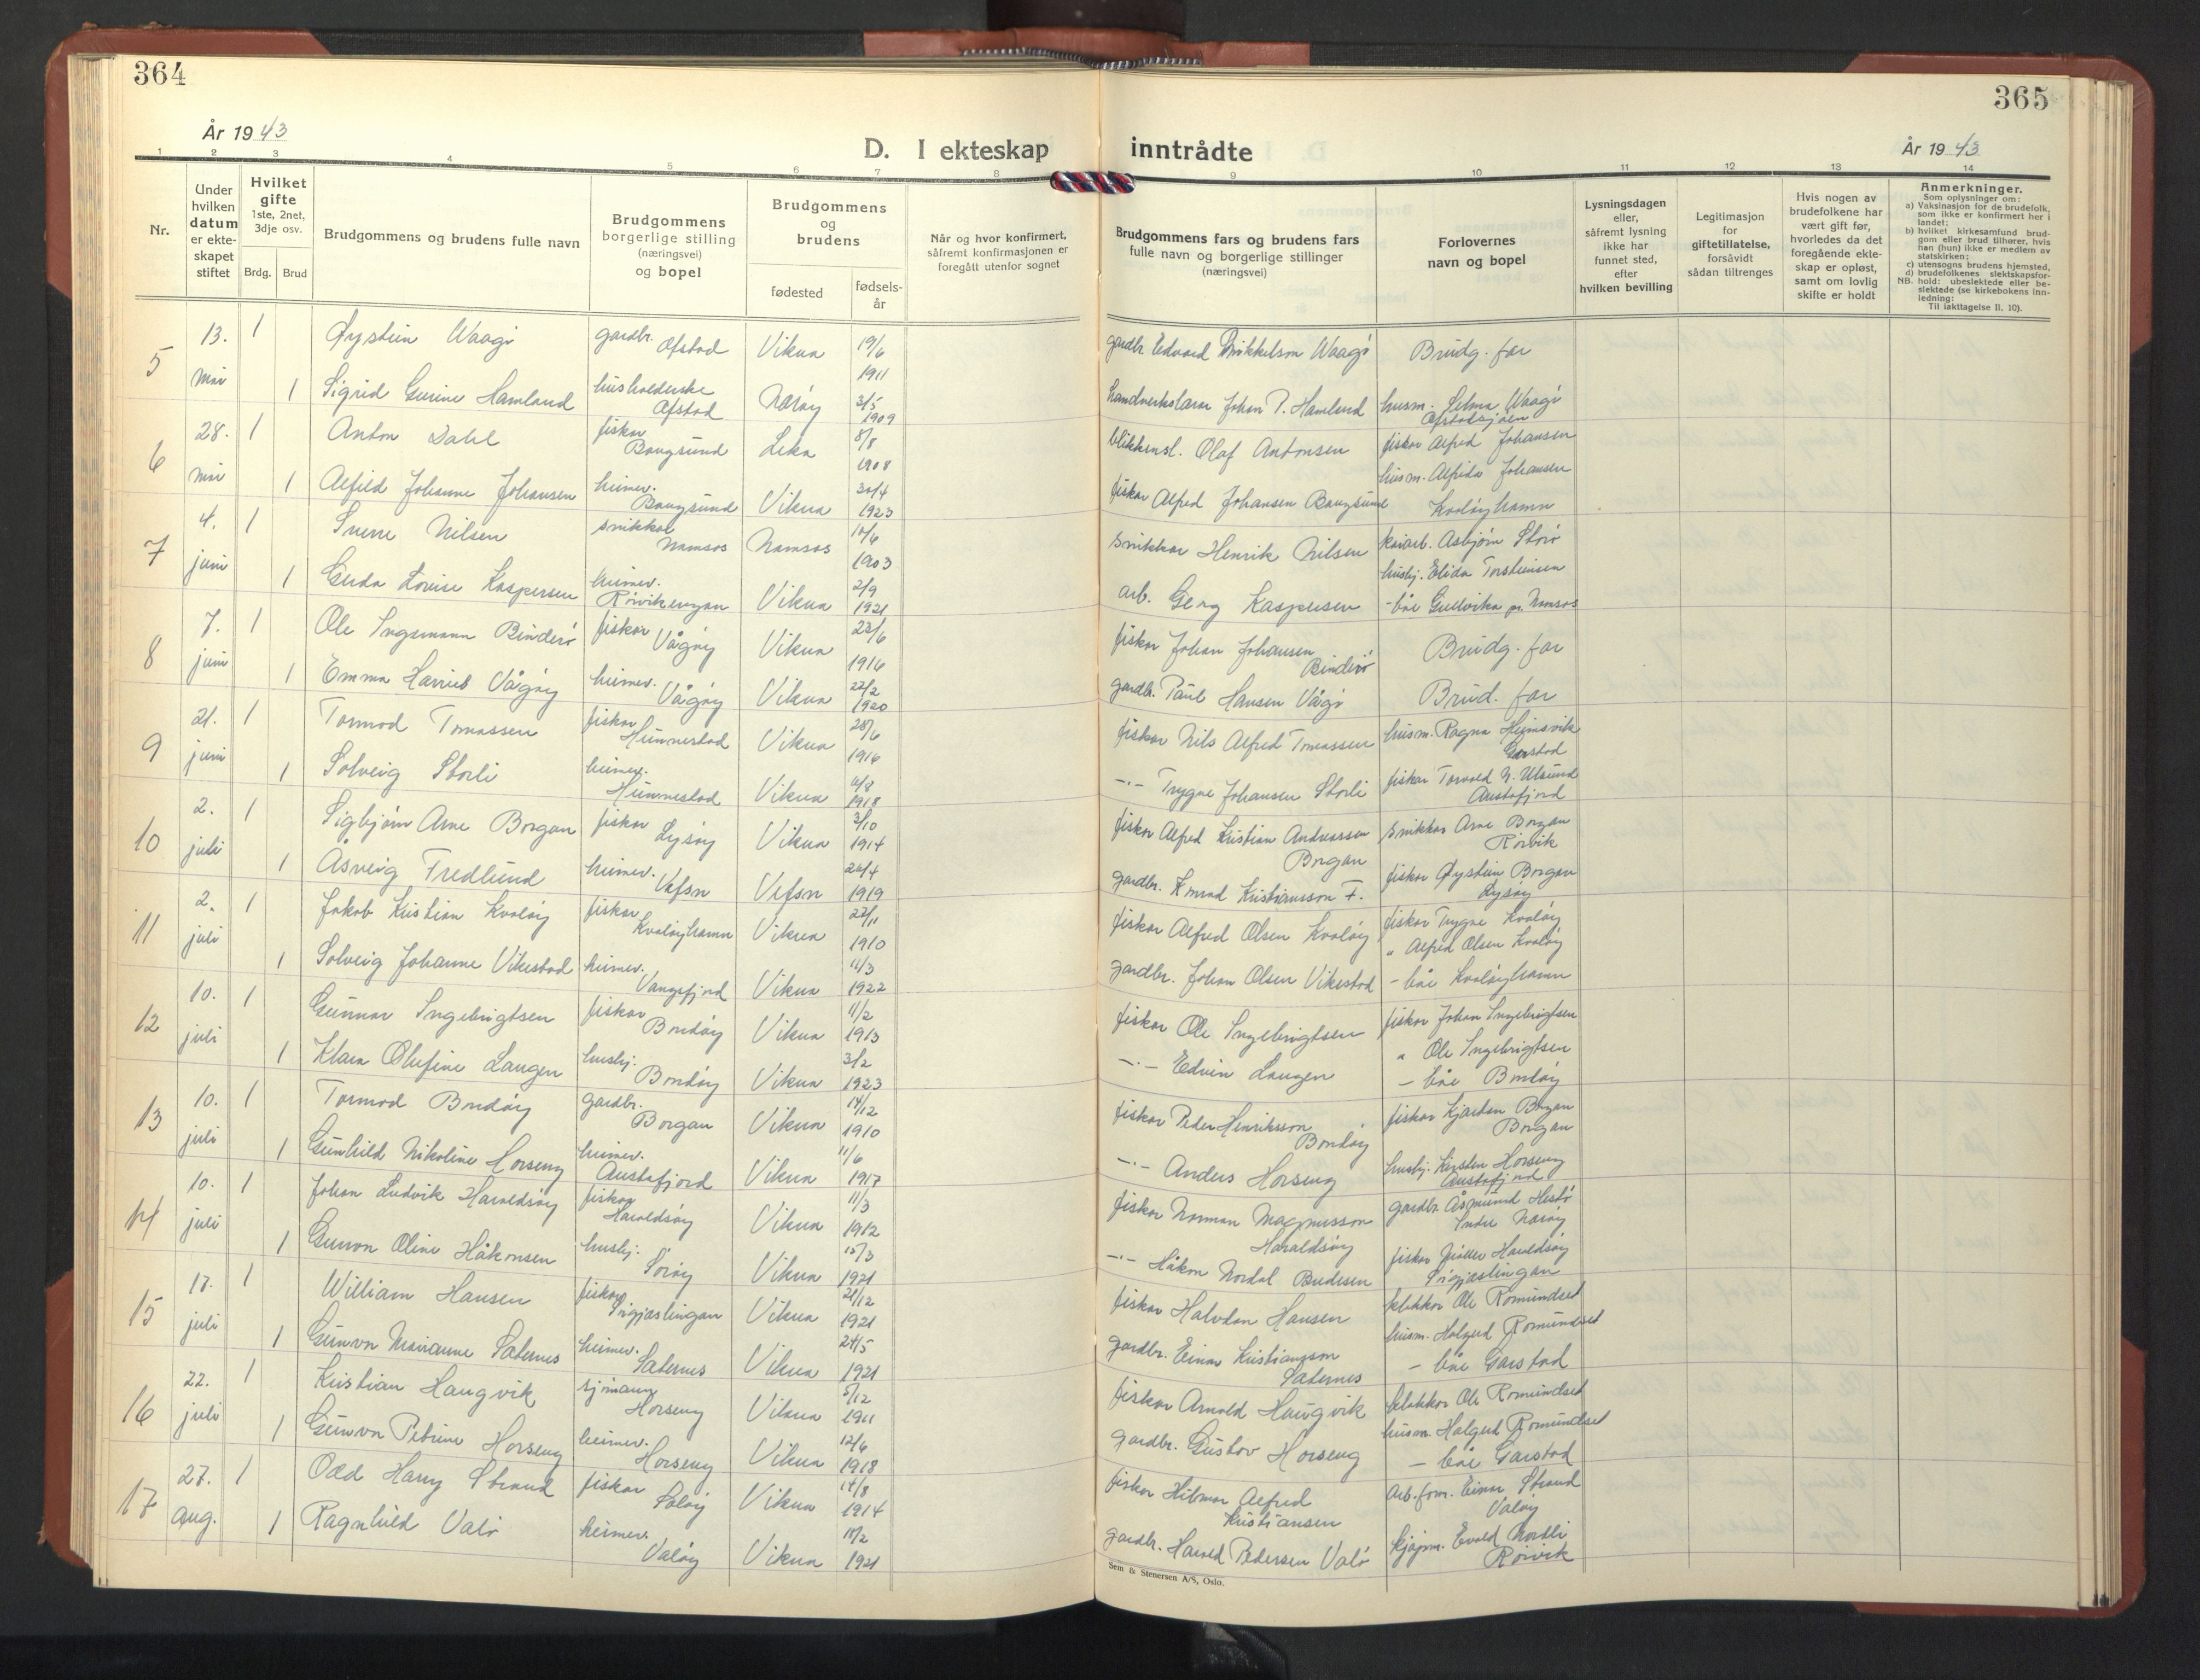 364
År 1943
D. I ekteskap
1 2 3 4 5 6 7 8
Nr.
Under hvilken datum er ekte-skapet stiftet
Hvilket gifte 1ste, 2net, 3dje osv.
Brdg. Brud
Brudgommens og brudens fulle navn
Brudgommens borgerlige stilling (næringsvei) og bopel
Brudgommens og brudens
fødested
fødsels-år
Når og hvor konfirmert, såfremt konfirmasjonen er foregått utenfor sognet
5 13. mai 1 Øystein Waagø gardbr. Ofstad Vikna 19/6 1911
1 Sigrid Gurine Hamland husholderske Ofstad Nærøy 3/5 1909
6 28. mai 1 Anton Dahl fisker Baugsund Leka 8/8 1908
1 Alfild Johanne Johansen heimev. Baugsund Vikna 30/4 1923
7 4. juni 1 Sverre Nilsen snikker Namsos Namsos 1903
1 Gerda Lovise Kaspersen heimev. Vikna 2/9 1921
8 7. juni 1 Ole Ingemann Binderø fisker Vågøy Vikna 23/6 1916
1 Emma Harriet Vågøy heimev. Vågøy Vikna 22/2 1920
9 21. juni 1 Tormod Tomassen fisker Hunnestad Vikna 28/6 1916
1 Solveig Storli heimev. Hunnestad Vikna 1918
10 2. juli 1 Sigbjørn Arne Borgan fisker Lysøy Vikna 3/10 1914
1 Åsveig Fredlund heimev. Vefsn Vefsn 24/4 1919
11 2. juli 1 Jakob Kristian Kvaløy fisker Kvaløyhamn Vikna 22/11 1910
1 Solveig Johanne Vikestad heimev. Vangsfjord Vikna 11/3 1922
12 10. juli 1 Gunnar Ingebrigtsen fisker Bondøy Vikna 11/2 1913
1 Klara Olufine Laugen hushj. Bondøy Vikna 3/2 1923
13 10. juli 1 Tormod Bondøy gardbr. Borgan Vikna 14/12 1910
1 Gunhild Nikoline Horseng heimev. Austafjord Vikna 11/6 1917
14 10. juli 1 Johan Ludvik Haraldsøy fisker Haraldsøy Vikna 11/3 1912
1 Gunvor Oline Håkonsen hushj. Sørøy Vikna 15/3 1921
15 17. juli 1 William Hansen fisker Vikna 21/12 1921
1 Gunvor Marianne Saternes heimev. Saternes Vikna 24/5 1921
16 22. juli 1 Kristian Haugvik sjømann Horseng Vikna 5/12 1911
1 Gunvor Petrine Horseng heimev. Horseng Vikna 12/6 1918
17 27. aug. 1 Odd Harry Strand fisker Vikna 14/8 1914
1 Ragnhild Valø heimev. Valøy Vikna 1921
365
inntrådte
År 1943
9 10 11 12 13 14
Brudgommens fars og brudens fars fulle navn og borgerlige stillinger (næringsvei)
Forlovernes navn og bopel
Lysningsdagen eller, såfremt lysning ikke har funnet sted, efter hvilken bevilling
Legitimasjon for giftetillatelse, forsåvidt sådan tiltrenges
Hvis nogen av brudefolkene har vært gift før, hvorledes da det foregående ekte-skap er opløst, samt om lovlig skifte er holdt
Anmerkninger.
Som oplysninger om:
a) Vaksinasjon for de brudefolk, som ikke er konfirmert her i landet;
b) hvilket kirkesamfund brud-gom eller brud tilhører, hvis han (hun) ikke er medlem av statskirken;
c) utensogns brudens hjemsted,
d) brudefolkenes slektskapsfor-hold: ubeslektede eller be-slektede (se kirkebokens inn-ledning:
NB.
Til iakttagelse II. 10).
gardbr. Edvard Mikkelsen Waagø Brudg. far
Handverkslærer Johan P. Hamland husm. Selma Waagø Ofstadsjøen
blikkensl. Olaf Antonsen fisker Alfred Johansen
fisker Alfred Johansen Baugsund husm. Alfrida Johansen Kvaløyhamn
Snikker Henrik Nilsen kaiarb. Asbjørn Storø
arb. Georg Kaspersen hushj. Elida Torsteinsen - båe Gullvika pr. Namsos
fisker Johan Johansen Binderø Brudg. far
gardbr. Paul Hansen Vågø Brud. far
fisker Nils Alfred Tomassen husm. Ragna Heimsvik Garstad
-"- Trygve Johansen Storli fisker Torvald N. Ulsund Austafjord
fisker Alfred Kristian Andreassen Borgan snikker Arne Borgan Rørvik
gardbr. Konrad Kristiansson F. fisker Øystein Borgan Lysøy
fisker Alfred Olsen Kvaløy fisker Trygve Kvaløy
gardbr. Johan Olsen Vikestad " Alfred Olsen Kvaløy - båe Kvaløyhamn
fisker Ole Ingebrigtsen fisker Johan Ingebrigtsen
-"- Edvin Laugen " Ole Ingebrigtsen - båe Bondøy
fisker Peder Henriksson Bondøy fisker Kjartan Borgan Borgan
-"- Anders Horseng hushj. Kirsten Horseng Austafjord
fisker Norman Magnusson Haraldsøy gardbr. Åsmund Hestø Indre Nærøy
-"- Håkon Nordal fisker Haraldsøy
fisker Halvdan Hansen klokker Ole Romundset
gardbr. Einar Kristiansson Saternes husm. Halgerd Romundset - båe Garstad
fisker Arnold Haugvik klokker Ole Romundset
gardbr. Gustav Horseng husm. Halgerd Romundset - båe Garstad
fisker Hilmar Alfred Kristiansen arb.form. Einar Strand Valøy
gardbr. Harald Pedersen Valø Evald Nordli Rørvik
Sem & Stenersen A/S, Oslo.